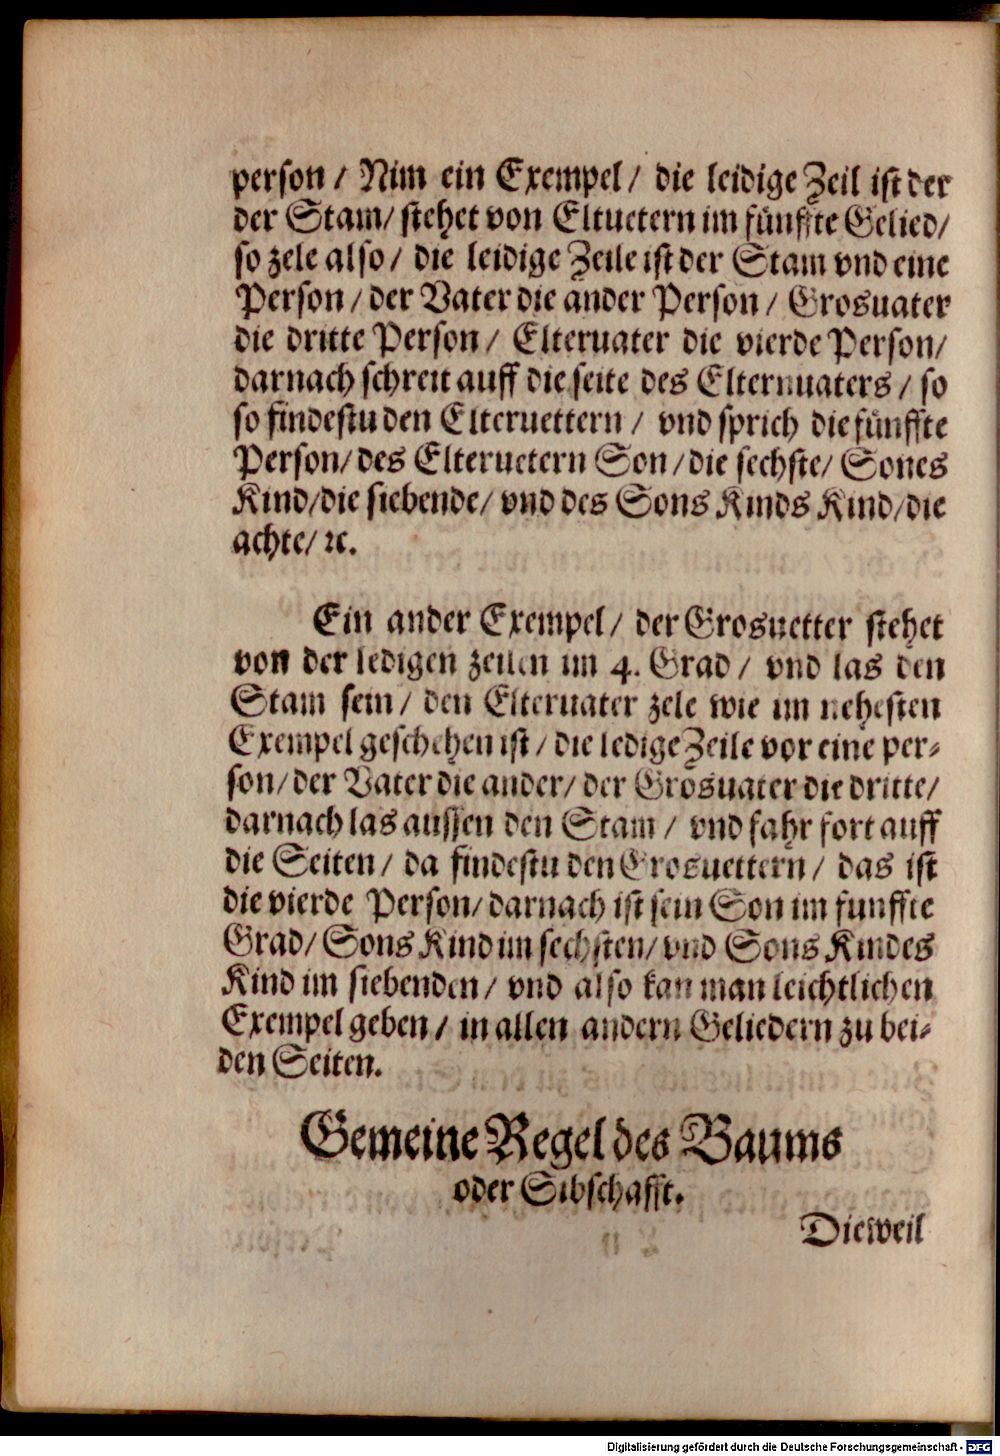 person / Nim ein Exempel / die leidige Zeil ist der
der Stam/ stehet von Eltuetern im fünffte Gelied/
so zele also / die leidige Zeile ist der Stam vnd eine
Person / der Vater die ander Person / Grosuater
die dritte Person / Elteruater die vierde Person/
darnach schreit auff die seite des Elternuaters / so
so findestu den Elteruettern / vnd sprich die fünffte
Person/ des Elteruetern Son / die sechste/ Sones
Kind/die siebende/ vnd des Sons Kinds Kind/die
achte/ ꝛc.
Ein ander Exempel / der Grosuetter stehet
von der ledigen zeilen im 4. Grad / vnd las den
Stam sein / den Elteruater zele wie im nehesten
Exempel geschehen ist / die ledige Zeile vor eine per-
son/ der Vater die ander/ der Grosuater die dritte/
darnach las aussen den Stam / vnd fahr fort auff
die Seiten / da findestu den Grosuettern / das ist
die vierde Person/ darnach ist sein Son im funffte
Grad/ Sons Kind im sechsten/ vnd Sons Kindes
Kind im siebenden / vnd also kan man leichtlichen
Exempel geben / in allen andern Geliedern zu bei-
den Seiten.
Gemeine Regel des Baums
oder Sibschafft.
Dieweil
Digitalisierung gefördert durch die Deutsche Forschungsgemeinschaft - DFG